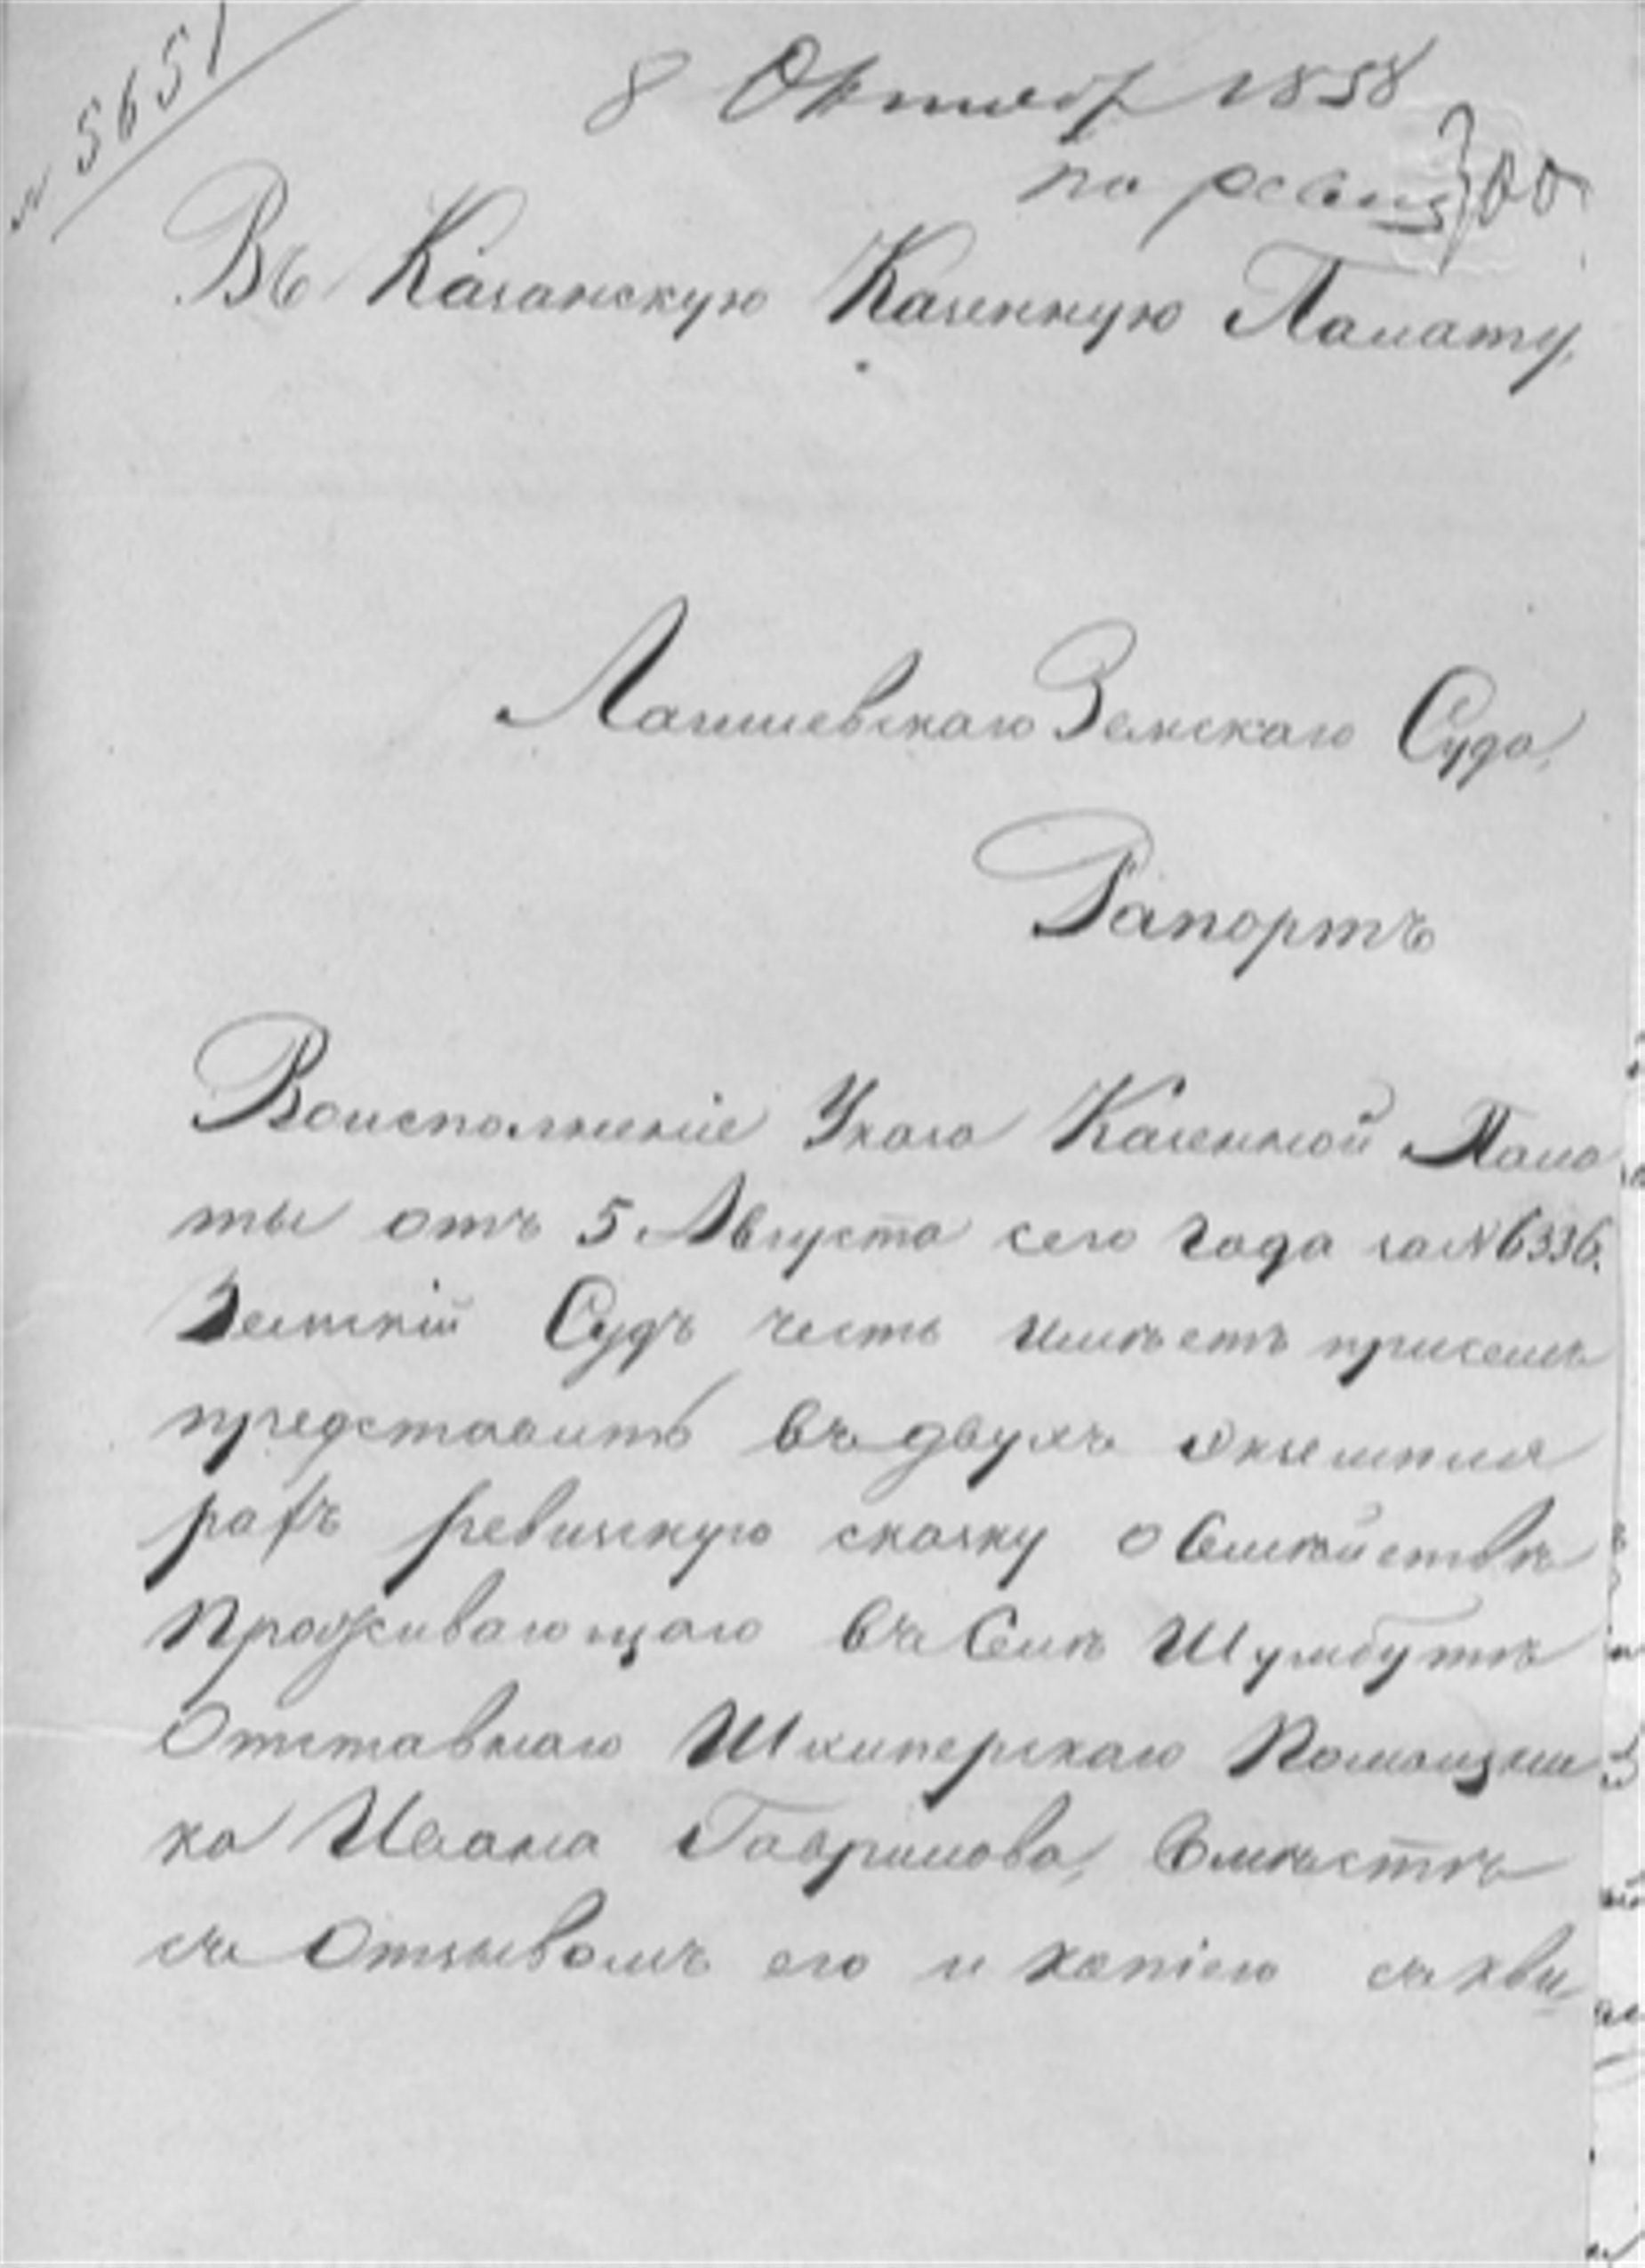 № 5651
8 Октябр 1858
по ревиз
300
Въ Казанскую Казенную Палату,
Лаишевскаго Земскаго Суда,
Рапортъ
Воисполнение Указа Казенной Пала
ты отъ 5 Августа сего года за № 6336.
Земскій Судъ честь имѣетъ присемъ
представить въ двухъ экземпля
рахъ ревизскую сказку о Семѣйствѣ
Проживающаго въ Селѣ Шумбутѣ
Отставнаго Шхиперскаго Помощни
ка Ивана Гаврилова, вмѣстѣ
съ Отзывомъ его и копіею съ кви